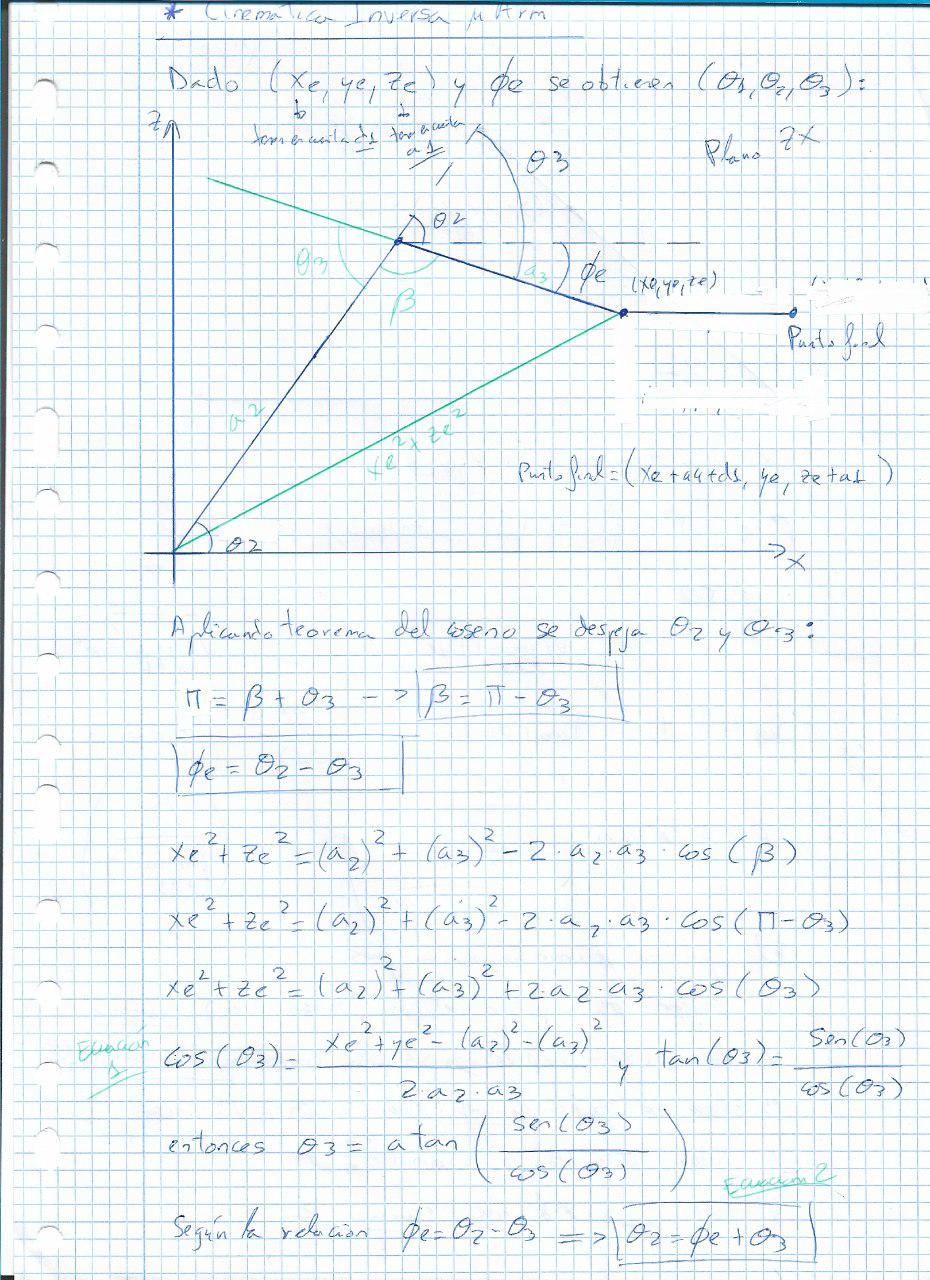 * Cinemática Inversa μArm
Dado (xe, ye, ze) y ϕe se obtienen (θ1, θ2, θ3):
z
tener en cuenta d1
tener en cuenta a1
θ3
Plano ZX
θ2
θ3
a3
ϕe
(xe, ye, ze)
β
Punto final
a2
xe² x ze²
Punto final = (xe + a4 + d1, ye, ze + a1)
θ2
x
Aplicando teorema del coseno se despeja θ2 y θ3:
π = β + θ3 -> β = π - θ3
ϕe = θ2 - θ3
xe² + ze² = (a2)² + (a3)² - 2 · a2 · a3 · cos(β)
xe² + ze² = (a2)² + (a3)² - 2 · a2 · a3 · cos(π - θ3)
xe² + ze² = (a2)² + (a3)² + 2 · a2 · a3 · cos(θ3)
Ecuación 1
cos(θ3) = (xe² + ye² - (a2)² - (a3)²) / (2 · a2 · a3) y tan(θ3) = sen(θ3) / cos(θ3)
entonces θ3 = atan(sen(θ3) / cos(θ3))
Ecuación 2
Según la relación ϕe = θ2 - θ3 => θ2 = ϕe + θ3